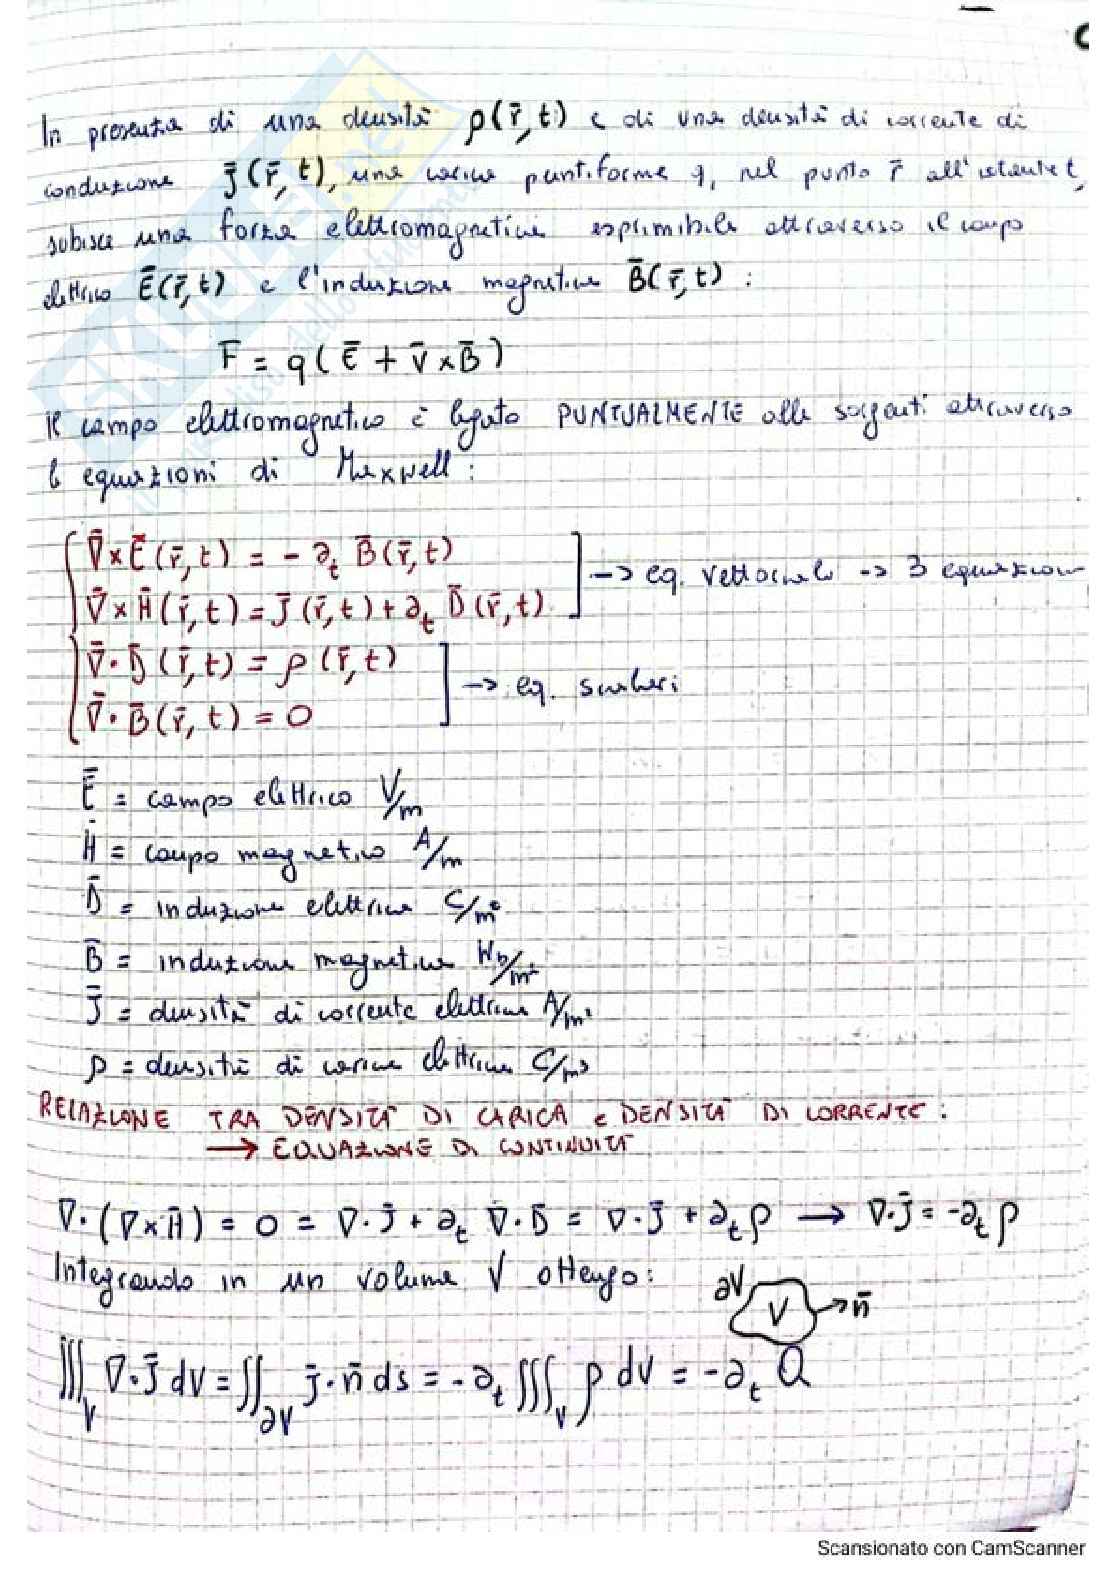 In presenza di una densità ρ(r̄, t) e di una densità di corrente di
conduzione J̄(r̄, t), una carica puntiforme q, nel punto r̄ all'istante t,
subisce una forza elettromagnetica esprimibile attraverso il campo
elettrico Ē(r̄, t) e l'induzione magnetica B̄(r̄, t) :
F = q(Ē + v̄ × B̄)
il campo elettromagnetico è legato PUNTUALMENTE alle sorgenti attraverso
le equazioni di Maxwell :
∇̄ × Ē(r̄, t) = - ∂t B̄(r̄, t)
∇̄ × H̄(r̄, t) = J̄(r̄, t) + ∂t D̄(r̄, t)
→ eq. vettoriale → 3 equazioni
∇̄ · D̄(r̄, t) = ρ(r̄, t)
∇̄ · B̄(r̄, t) = 0
→ eq. scalari
Ē = campo elettrico V/m
H = campo magnetico A/m
D̄ = induzione elettrica C/m²
B̄ = induzione magnetica Wb/m²
J̄ = densità di corrente elettrica A/m²
ρ = densità di carica elettrica C/m³
RELAZIONE TRA DENSITÀ DI CARICA e DENSITÀ DI CORRENTE :
→ EQUAZIONE DI CONTINUITÀ
∇ · (∇ × H̄) = 0 = ∇ · J̄ + ∂t ∇ · D̄ = ∇ · J̄ + ∂t ρ → ∇ · J̄ = -∂t ρ
Integrando in un volume V ottengo :
∂V V → n̄
∭V ∇ · J̄ dV = ∬∂V J̄ · n̄ ds = - ∂t ∭V ρ dV = -∂t Q
Scansionato con CamScanner